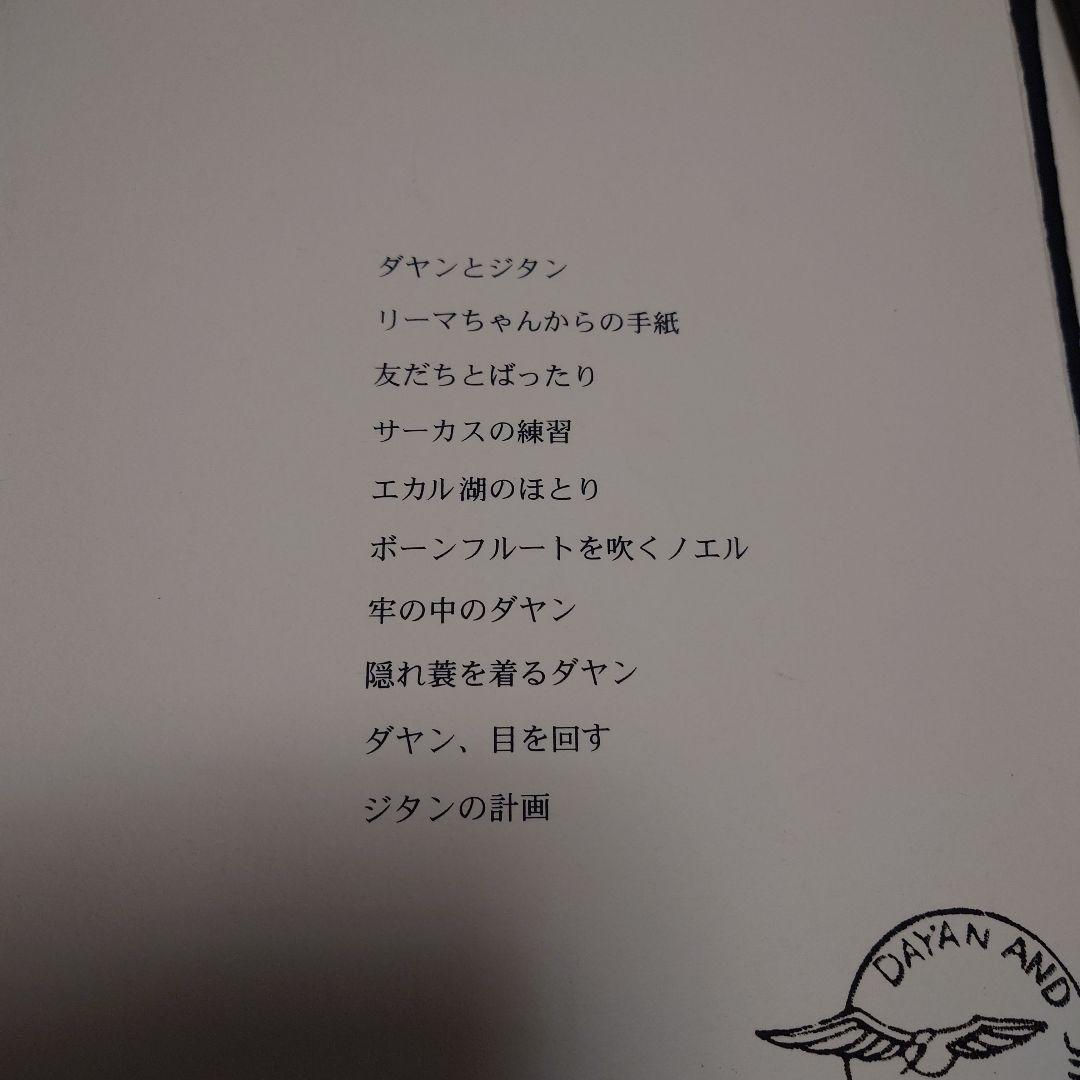 ダヤンとジタン
リーマちゃんからの手紙
友だちとばったり
サーカスの練習
エカル湖のほとり
ボーンフルートを吹くノエル
牢の中のダヤン
隠れ蓑を着るダヤン
ダヤン、目を回す
ジタンの計画
DAYAN AND